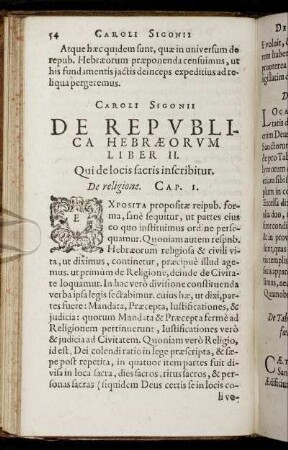 54 CAROLI SIGONII
Atque hæc quidem sunt, quæ in universum de
repub. Hebræorum præponenda censuimus, ut
his fundamentis jactis deinceps expeditius ad re-
liqua pergeremus.
CAROLI SIGONII
DE REPVBLI-
CA HEBRÆORVM
LIBER II.
Qui de locis sacris inscribitur.
De religione. CAP. I.
EXPOSITA propositæ reipub. for-
ma, sanè sequitur, ut partes eius
eo quo instituimus ordine perse-
quamur. Quoniam autem respub.
Hebræorum religiosa & civili vi-
ta, ut diximus, continetur, præcipuè illud age-
mus. ut primùm de Religione, deinde de Civita-
te loquamur. In hac verò divisione constituenda
verba ipsa legis sectabimur. cuius hæ, ut dixi, par-
tes fuere: Mandata, Præcepta, Iustificationes, &
judicia: quorum Mandata & Præcepta fermè ad
Religionem pertinuerunt, Iustificationes verò &
judicia ad Civitatem. Quoniam verò Religio,
id est, Dei colendi ratio in lege præscripta, & sæ-
pe post repetita, in quatuor item partes fuit di-
visa in loca sacra, dies sacros, ritus sacros, & per-
sonas sacras (siquidem Deus certis se in locis co-
li vo-
DE
Evolait,
LOCA